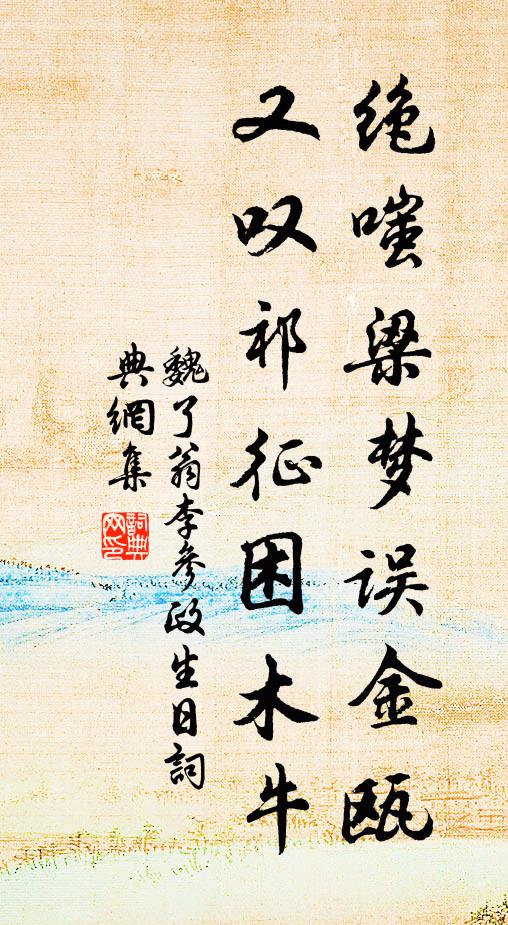 绝嗤梁梦误金瓯
又叹祁征困木牛
魏了翁李参政生日詞
典網集
詞典网印